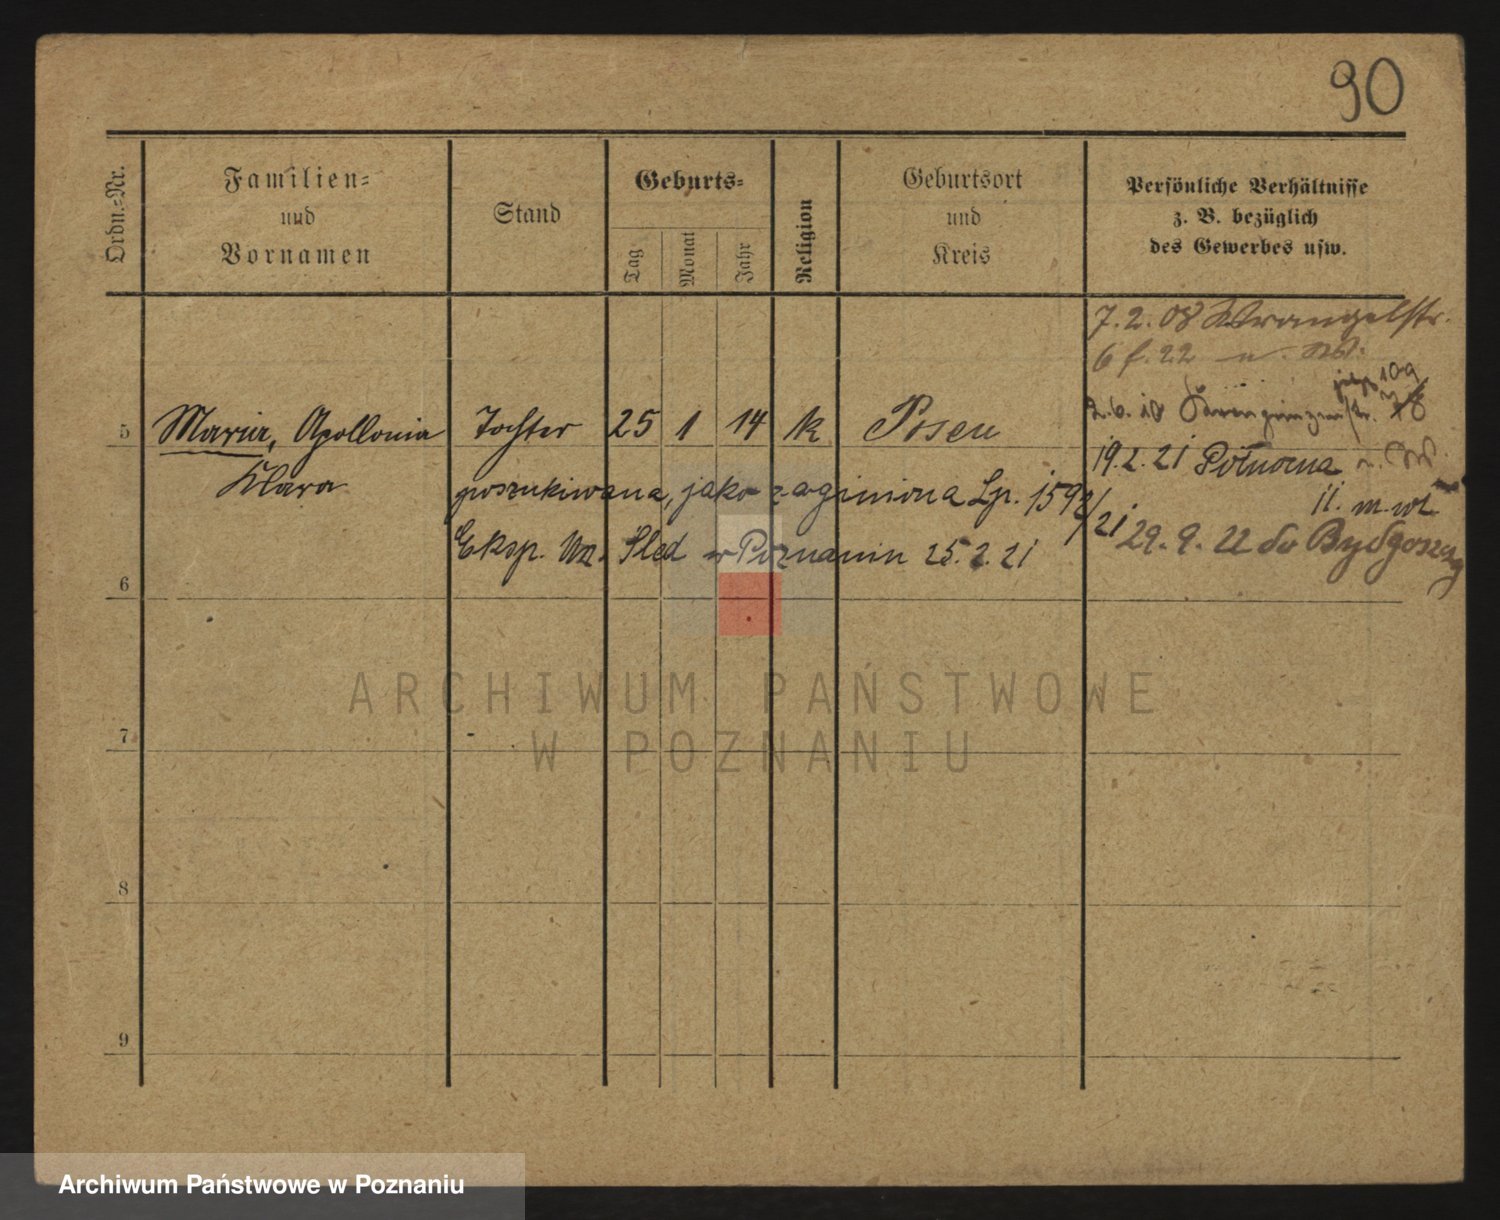 90
Ordn.-Nr.
Familien-
und
Vornamen
Stand
Geburts-
Tag
Monat
Jahr
Religion
Geburtsort
und
Kreis
Persönliche Verhältnisse
z. B. bezüglich
des Gewerbes usw.
7.2.08 Wrangelstr.
6 f. 22
109
5 Maria, Apollonia Tochter 25 1 14 k Posen
Klara
19.2.21 Północna
poszukiwana, jako zaginiona Lp. 1592/21
11. m. wł.
Eksp. Urz. Śled w Poznaniu 25.2.21
29.9.22 do Bydgoszcz
6
7
8
9
ARCHIWUM PAŃSTWOWE
W POZNANIU
Archiwum Państwowe w Poznaniu